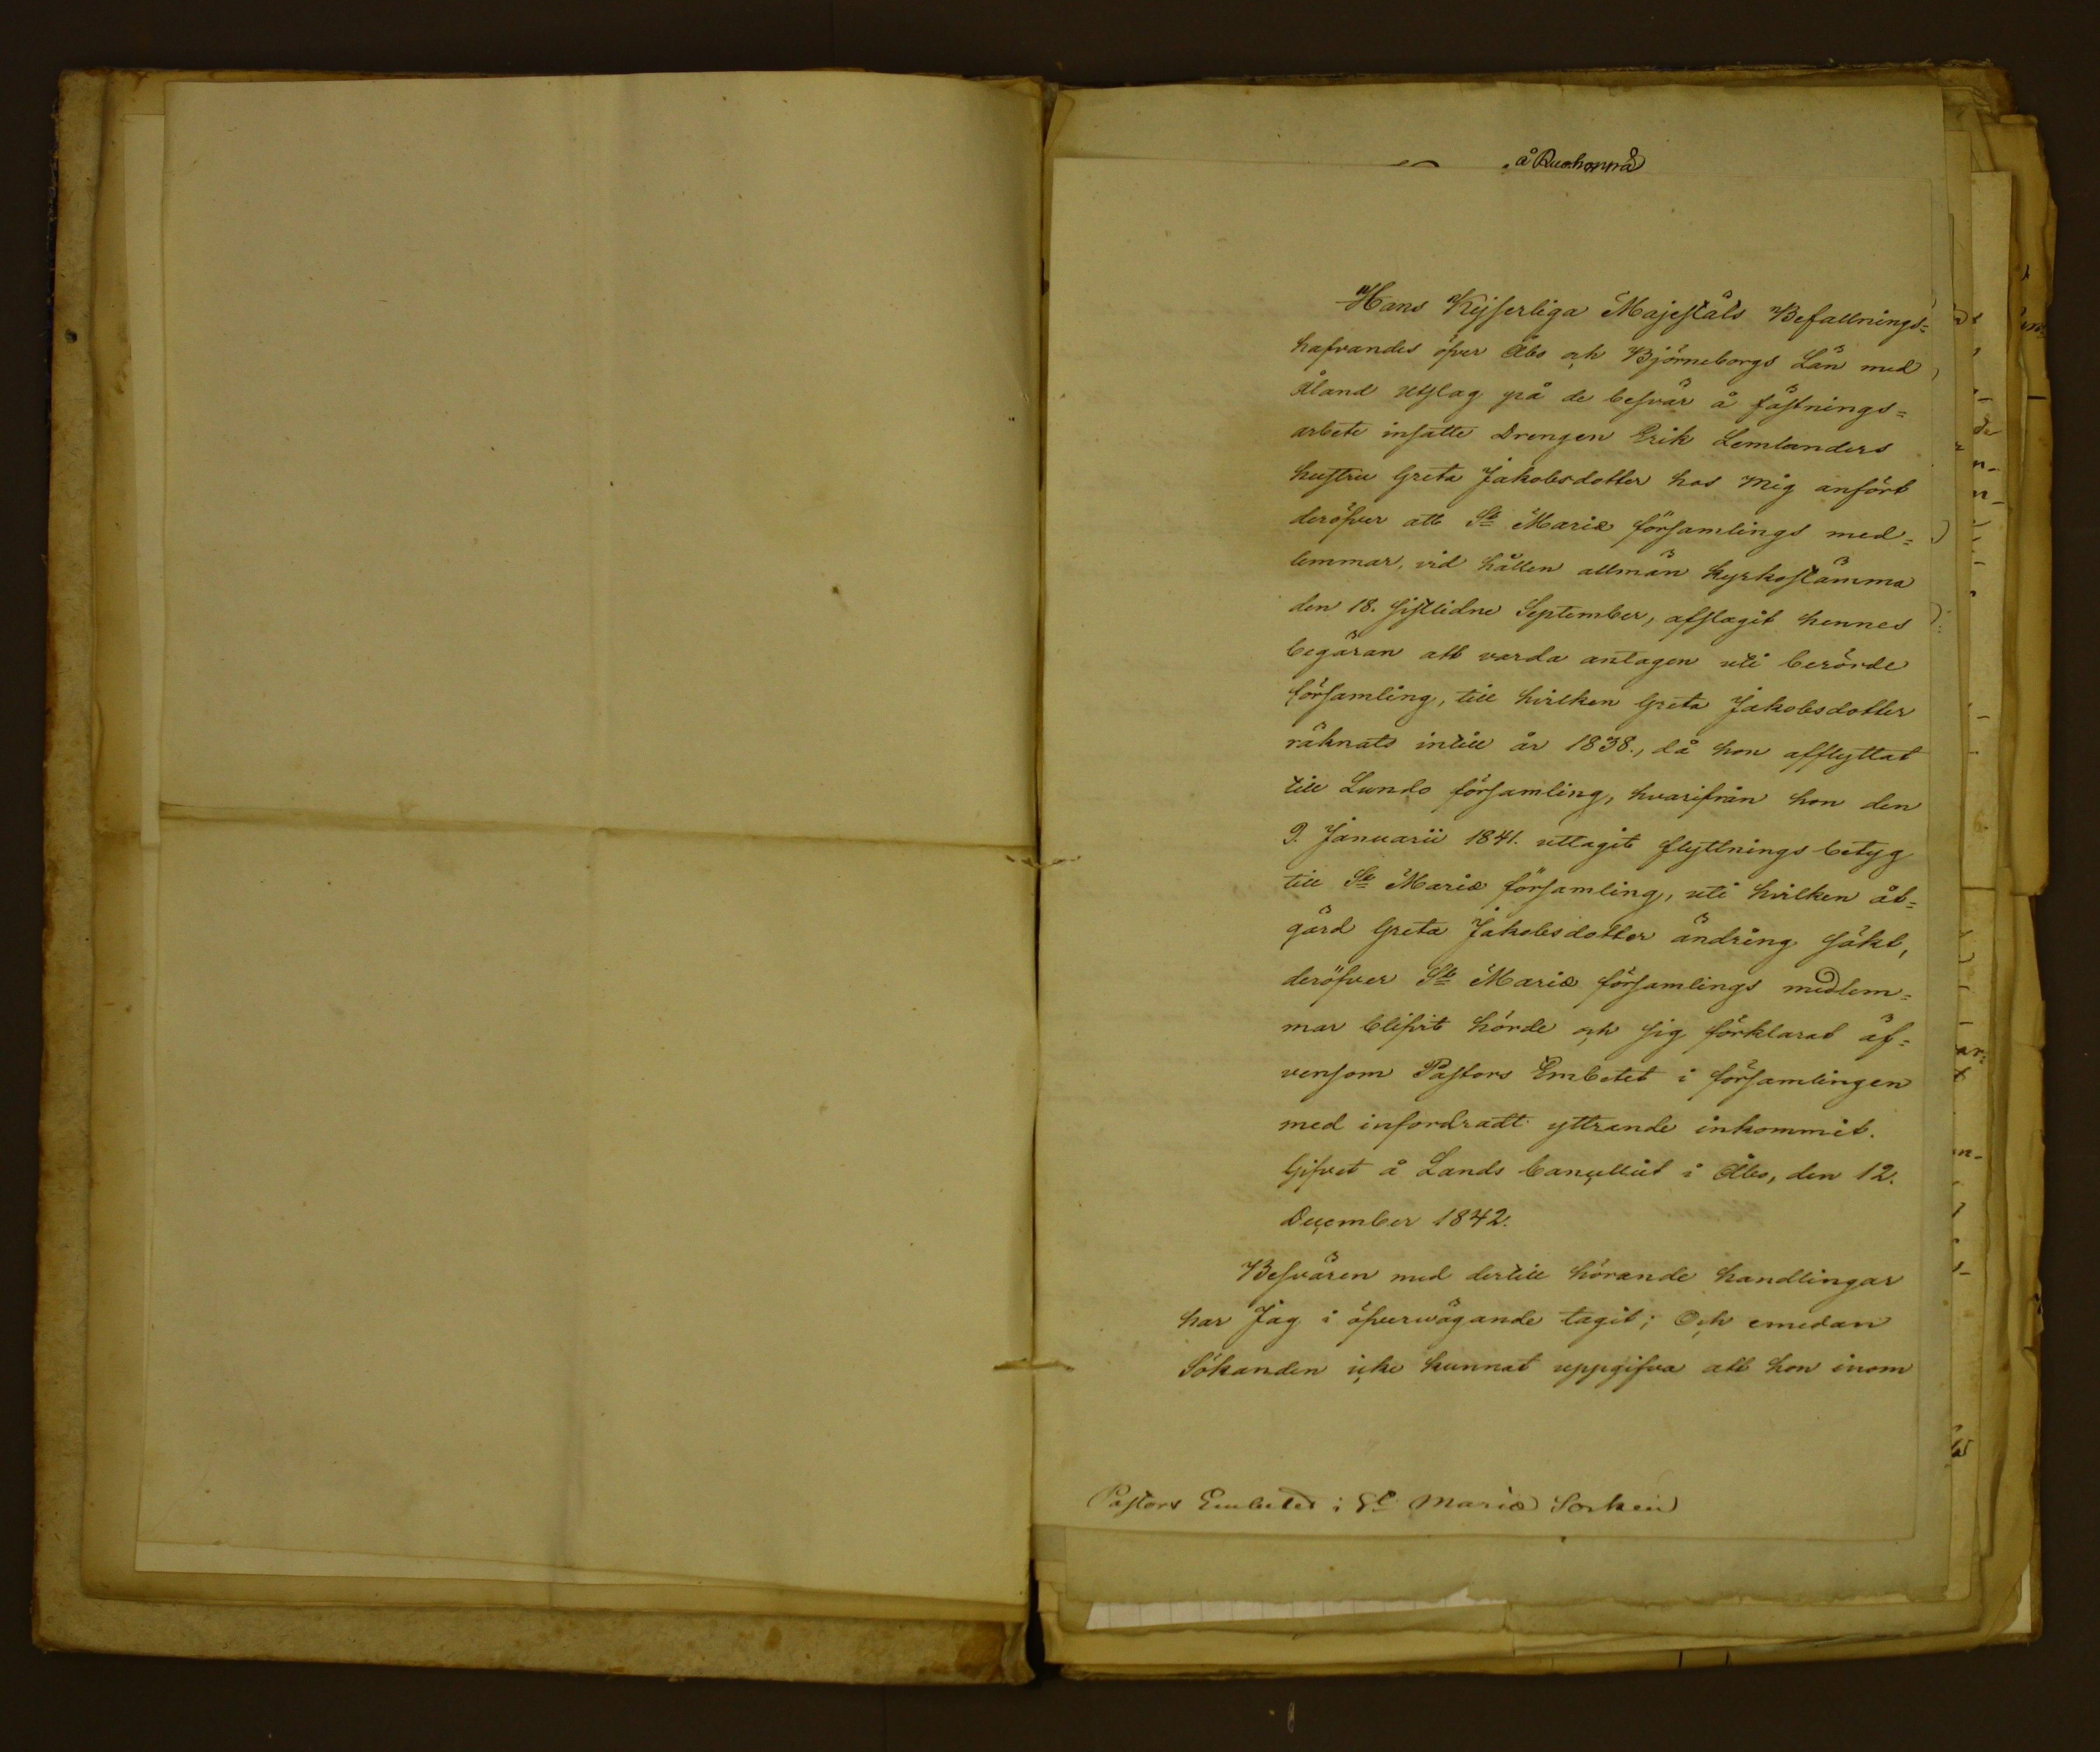 å Ruohonpä
Hans Kejserliga Majestäts Befallnings=
hafvandes öfver Åbo och Björneborgs Län med
Åland Utslag på de besvär å fästnings=
arbete insatte Drengen Erik Lemlanders
hustru Greta Jakobsdotter hos mig anfört
deröfver att St Mariæ församlings med=
lemmar, vid hållen allmän kyrkostämma
den 18. sistlidne September, afslagit hennes
begäran att varda antagen uti berörde
församling, till hvilken Greta Jakobsdotter
räknats intill år 1838., då hon afflyttat
till Lundo församling, hvarifrån hon den
9. Januarii 1841. uttagit flyttningsbetyg
till St Mariæ församling, uti hvilken åt=
gärd Greta Jakobsdotter ändring sökt,
deröfver St Mariæ församlings medlem=
mar blifvit hörde och sig förklarat äf=
vensom Pastors Embetet i församlingen
med infordradt yttrande inkommit.
Gifvet å Lands Cancelliet i Åbo, den 12.
December 1842.
Besvären med dertill hörande handlingar
har Jag i öfvervägande tagit; Och emedan
Sökanden icke kunnat uppgifva att hon inom
Pastors Embetet i St Mariæ Socken